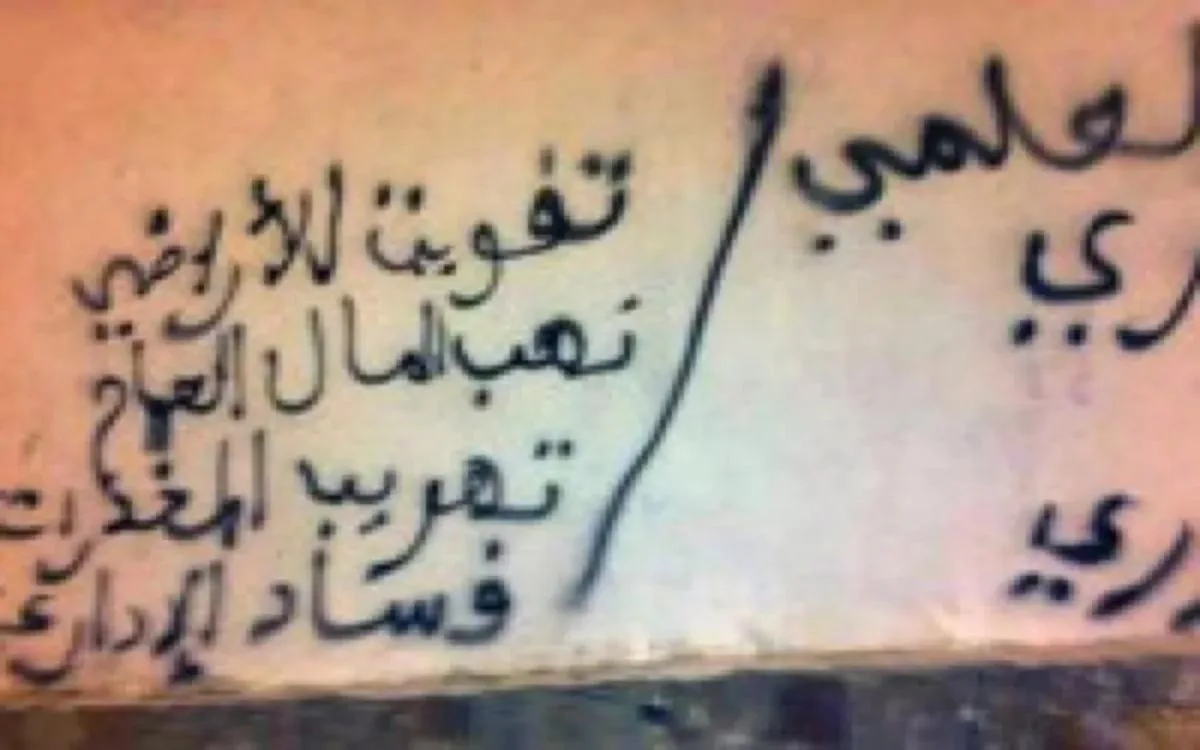 لعلمي / تفويت للأراضي
ري نهب المال العام
تهريب المخدرات
ري فساد الإدارية